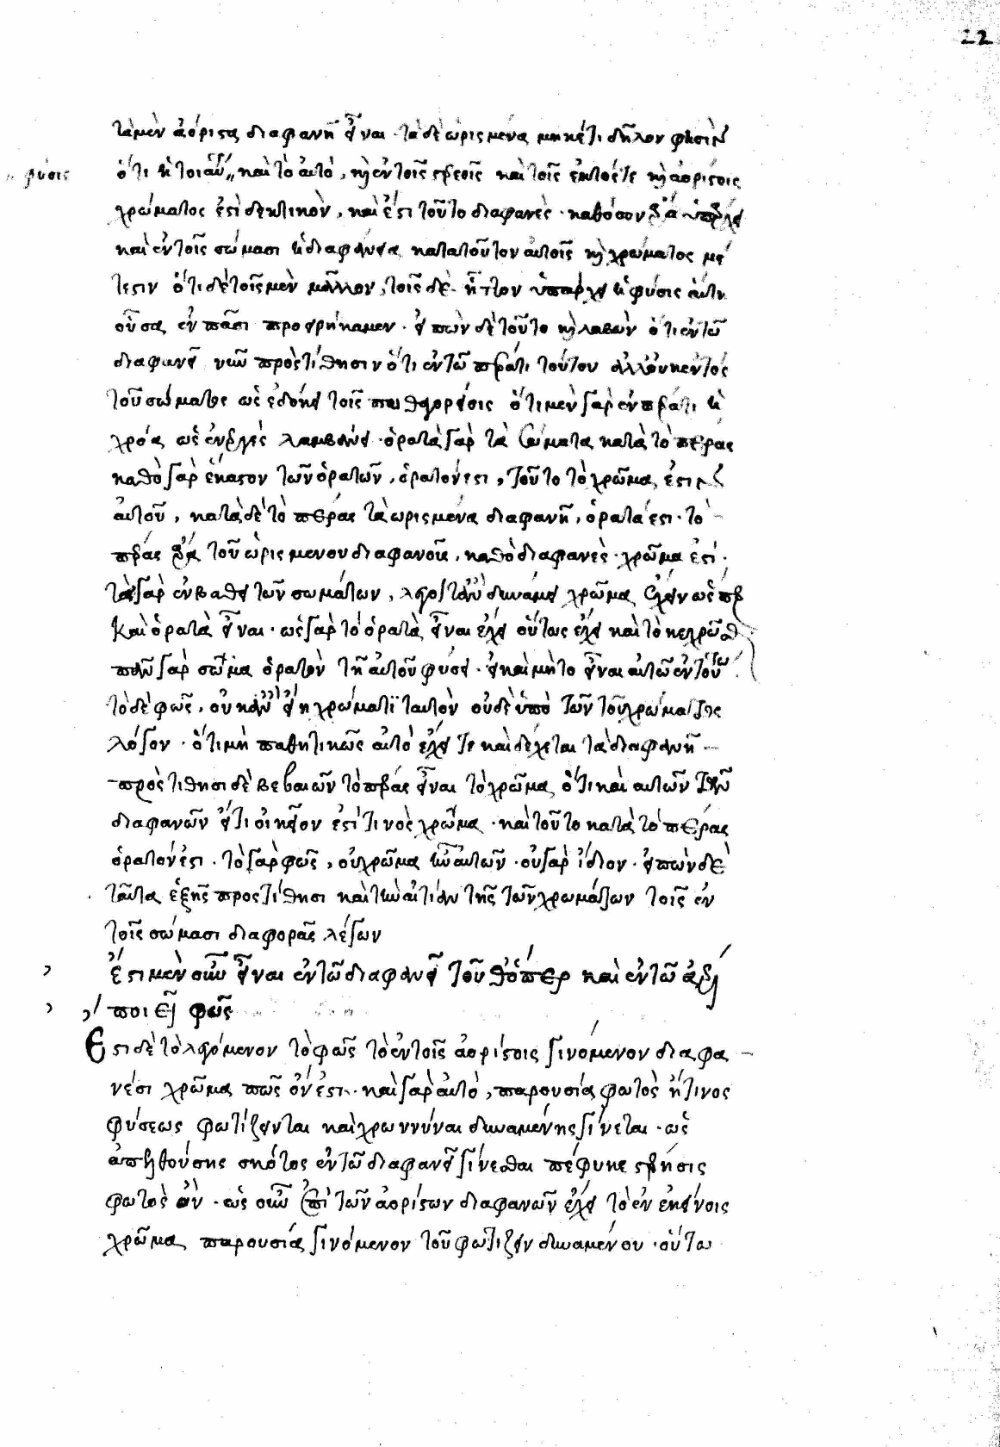 22
τὰ μὲν ἀόριστα διαφανῆ εἶναι· τὰ δὲ ὡρισμένα μηκέτι δῆλον φησὶν
φύσις
ὅτι ἡ τοιαύτη καὶ τὸ αὐτὸ, κἂν τοῖς στερεοῖς καὶ τοῖς ἐκτός τε καὶ ἀορίστοις
χρώματος ἐστὶ δεκτικὸν, καὶ ἔστι τοῦτο διαφανές· καθόσον ἄρα ὑπάρχει
καὶ ἐν τοῖς σώμασι ἡ διαφάνεια κατὰ τοῦτον αὐτοῖς καὶ χρώματος μέ
τεστιν ὅτι δὲ τοῖς μὲν μᾶλλον, τοῖς δὲ ἧττον ὑπάρχει ἡ φύσις αὕτη
οὖσα ἐν πᾶσι προειρήκαμεν· εἰπὼν δὲ τοῦτο καὶ λαβὼν ὅτι ἐν τῷ
διαφανεῖ νῦν προστίθησιν ὅτι ἐν τῷ πέρατι τούτου ἀλλ' οὐκ ἐντὸς
τοῦ σώματος ὡς ἐδόκει τοῖς πυθαγορείοις ὅτι μὲν γὰρ ἐν πέρατι ἡ
χρόα ὡς ἐναργὲς λαμβάνει· ὁρατὰ γὰρ τὰ σώματα κατὰ τὸ πέρας
καθὸ γὰρ ἕκαστον τῶν ὁρατῶν, ὁρατόν ἐστι, τοῦτο τὸ χρῶμα ἐστιν
αὐτοῦ, κατὰ δὲ τὸ πέρας τὰ ὡρισμένα διαφανῆ, ὁρατά ἐστι· τὸ
πέρας ἄρα τοῦ ὡρισμένου διαφανοῦς, καθὸ διαφανὲς· χρῶμα ἐστί·
τὰ γὰρ ἐν βάθει τῶν σωμάτων, λέγοιτ' ἂν δυνάμει χρῶμα ἔχειν ὡς περ
καὶ ὁρατὰ εἶναι· ὡς γὰρ τὸ ὁρατὰ εἶναι ἔχει οὕτως ἔχει καὶ τὸ κεχρῶσθ
πᾶν γὰρ σῶμα ὁρατὸν τῇ αὐτοῦ φύσει· εἰ καὶ μὴ τὸ εἶναι αὐτῷ ἐν τούτω
τὸ δὲ φῶς, οὐκ ἂν εἴη χρώματι ταυτὸν οὐδὲ ὑπὸ τῶν τοῦ χρώματος
λόγον· ὅτι μὴ παθητικῶς αὐτὸ ἔχει τε καὶ δέχεται τὰ διαφανῆ
προστίθησι δὲ βεβαιῶν τὸ πέρας εἶναι τὸ χρῶμα ὅτι καὶ αὐτῶν τῶν
διαφανῶν εἴ τι οἰκεῖον ἐστί τινος χρῶμα· καὶ τοῦτο κατὰ τὸ πέρας
ὁρατόν ἐστι· τὸ γὰρ φῶς, οὐ χρῶμα αὐτῶν· οὐ γὰρ ἴδιον· εἰπὼν δὲ
ταῦτα ἑξῆς προστίθησι καὶ τὴν αἰτίαν τῆς τῶν χρωμάτων τοῖς ἐν
τοῖς σώμασι διαφορᾶς λέγων
ἔστι μὲν οὖν εἶναι ἐν τῷ διαφανεῖ τοῦθ' ὅπερ καὶ ἐν τῷ ἀέρι
ποιεῖ φῶς
Ἔστι δὲ τὸ λεγόμενον τὸ φῶς τὸ ἐν τοῖς ἀορίστοις γινόμενον διαφα
νέσι χρῶμα πῶς ὄν ἐστι· καὶ γὰρ αὐτὸ, παρουσία φωτὸς ἤ τινος
φύσεως φωτίζειν τε καὶ χρωννύναι δυναμένης γίνεται· ὡς
ἀπελθούσης σκότος ἐν τῷ διαφανεῖ γίνεσθαι πέφυκε στέρησις
φωτὸς ὂν· ὡς οὖν ἐπὶ τῶν ἀορίστων διαφανῶν ἔχει τὸ ἐν ἐκείνοις
χρῶμα παρουσία γινόμενον τοῦ φωτίζειν δυναμένου· οὕτω